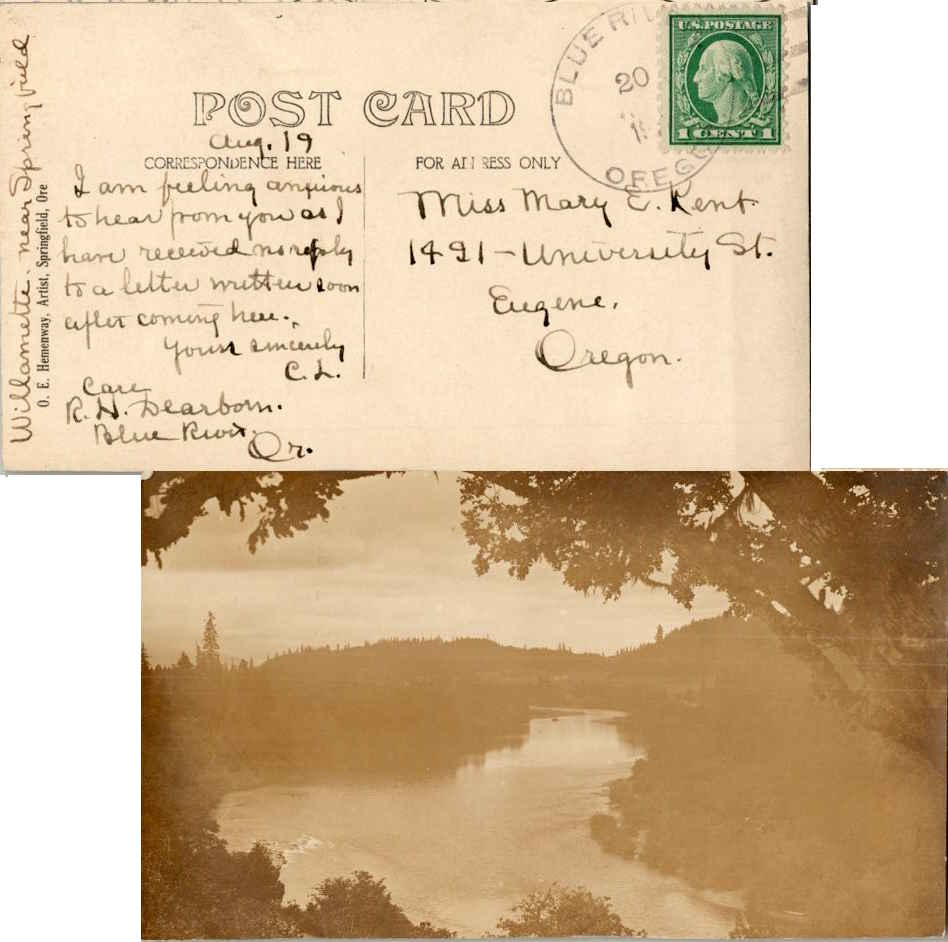 POST CARD
Aug. 19
CORRESPONDENCE HERE
I am feeling anxious
to hear from you as I
have received no reply
to a letter written soon
after coming here.
Yours sincerely
C. L.
Care
R. H. Dearborn.
Blue River.
Or.
FOR ADDRESS ONLY
Miss Mary E. Kent
1491 - University St.
Eugene,
Oregon.
BLUE RIV
20
OREGO
U.S. POSTAGE
1 CENT 1
Willamette - near Springfield
O. E. Hemenway, Artist, Springfield, Ore